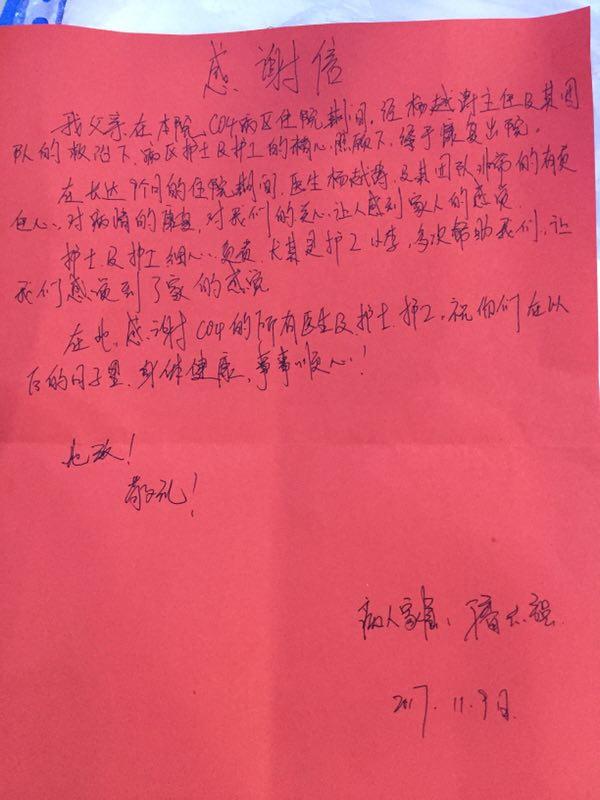 感谢信
我父亲在本院C04病区住院期间，经杨越涛主任及其团
队的救治下，病区护士及护工的精心照顾下，终于康复出院。
在长达9个月的住院期间，医生杨越涛及其团队非常的有责
任心，对病情的康复，对我们的关心，让人感到家人的感觉
护士及护工细心、负责，尤其是护工小李，多次帮助我们，让
我们感觉到了家的感觉
在此，感谢C04的所有医生及护士、护工，祝他们在以
后的日子里，身体健康，事事顺心！
此致！
敬礼！
病人家属：潘
2017.11.9日